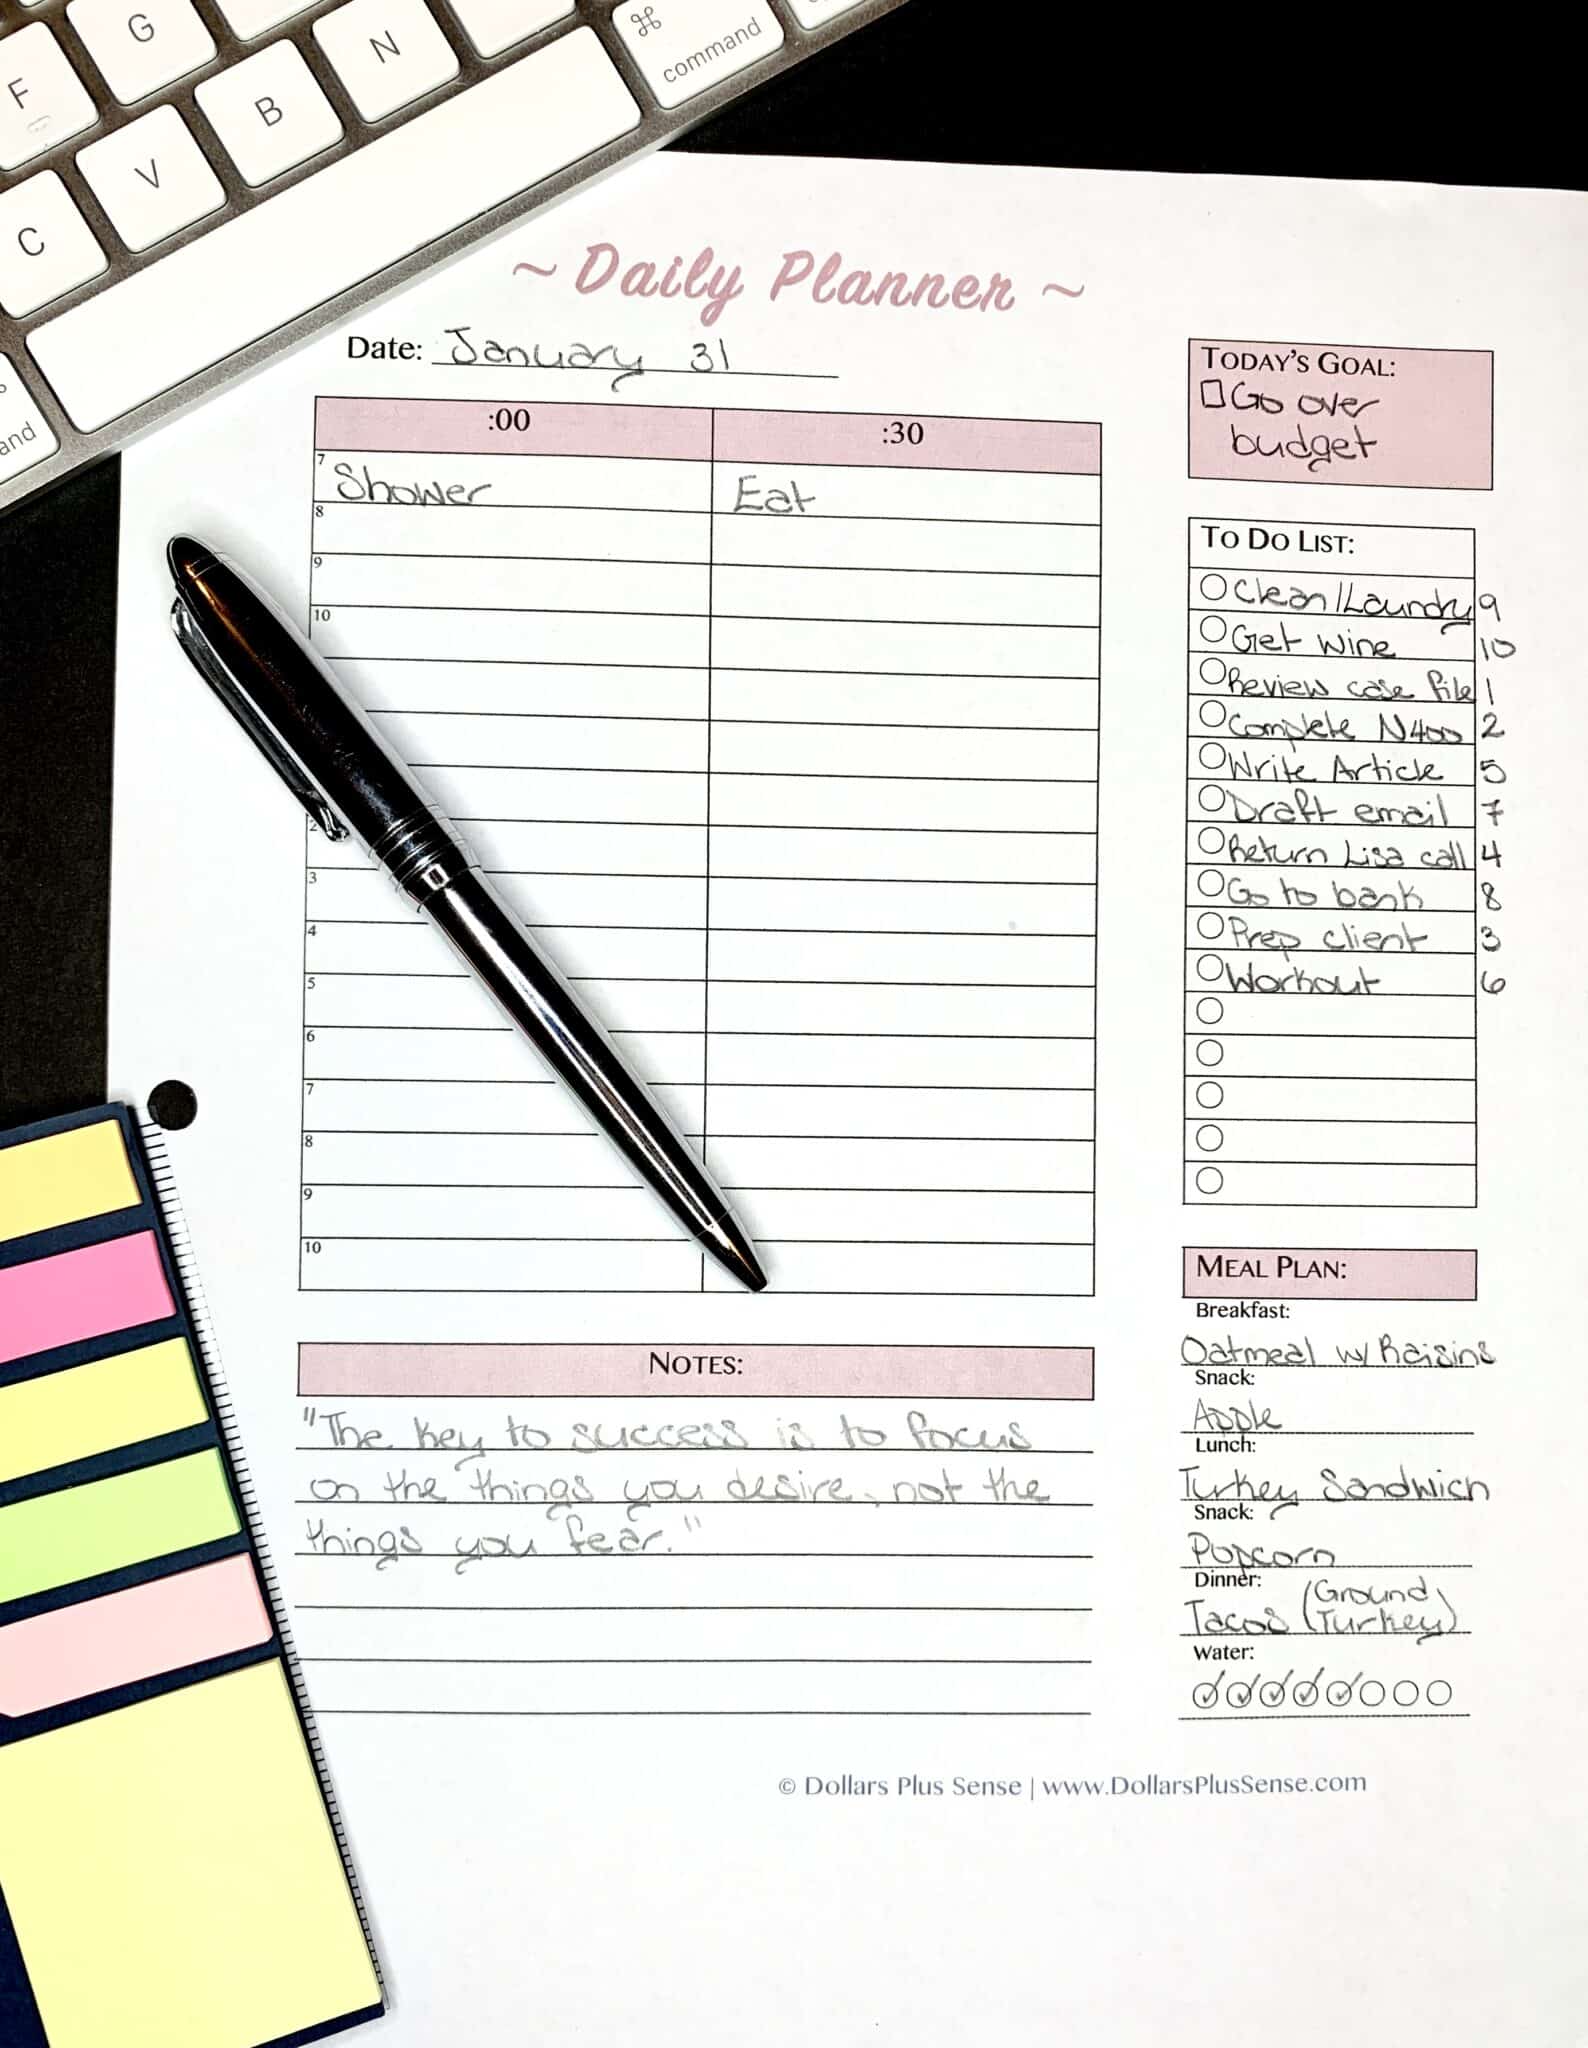 G
F
N
B
V
C
⌘
command
and
~ Daily Planner ~
Date: January 31
:00 :30
7 Shower Eat
8
9
10
2
3
4
5
6
7
8
9
10
NOTES:
"The key to success is to focus
on the things you desire, not the
things you fear."
TODAY'S GOAL:
Go over
budget
TO DO LIST:
Clean/Laundry 9
Get wine 10
Review case file 1
Complete N400 2
Write Article 5
Draft email 7
Return Lisa call 4
Go to bank 8
Prep client 3
Workout 6
MEAL PLAN:
Breakfast:
Oatmeal w/ Raisins
Snack:
Apple
Lunch:
Turkey Sandwich
Snack:
Popcorn
Dinner:
Tacos (Ground
Turkey)
Water:
© Dollars Plus Sense | www.DollarsPlusSense.com